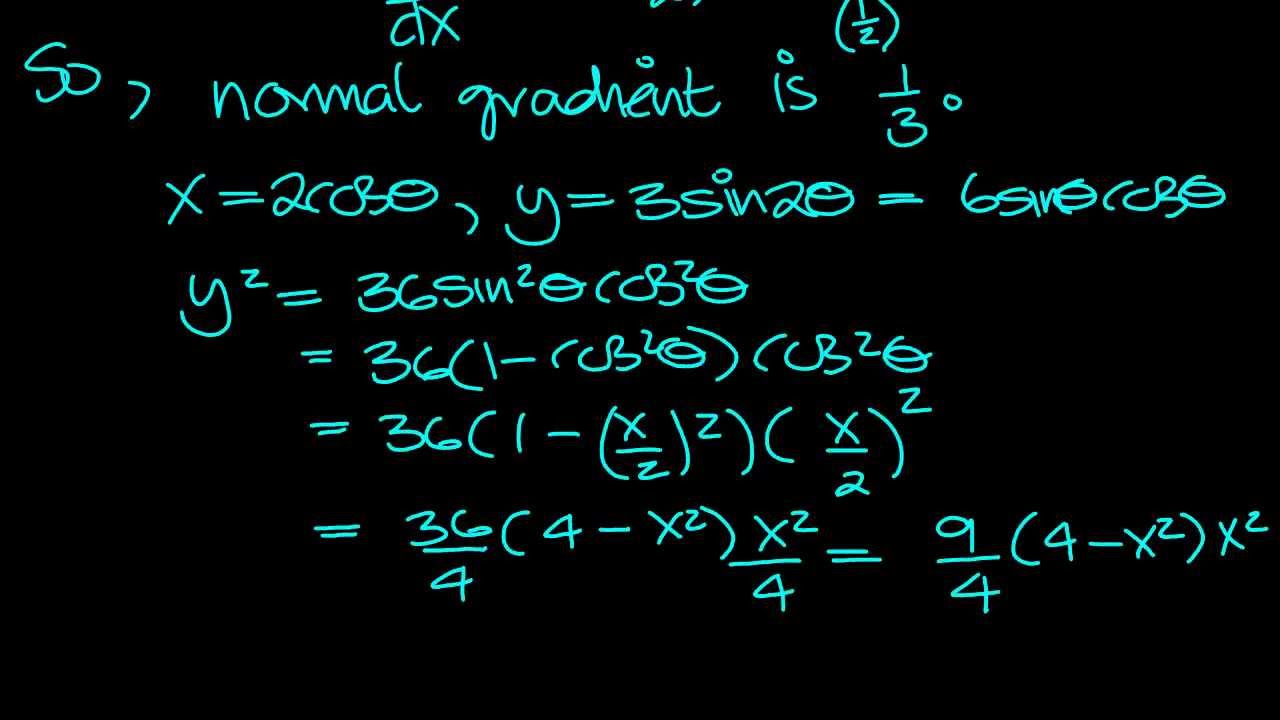 dx (1/2)
So, normal gradient is 1/3.
x = 2cosθ, y = 3sin2θ = 6sinθcosθ
y² = 36sin²θcos²θ
= 36(1 - cos²θ)cos²θ
= 36(1 - (x/2)²)(x/2)²
= 36/4(4 - x²)x²/4 = 9/4(4 - x²)x²